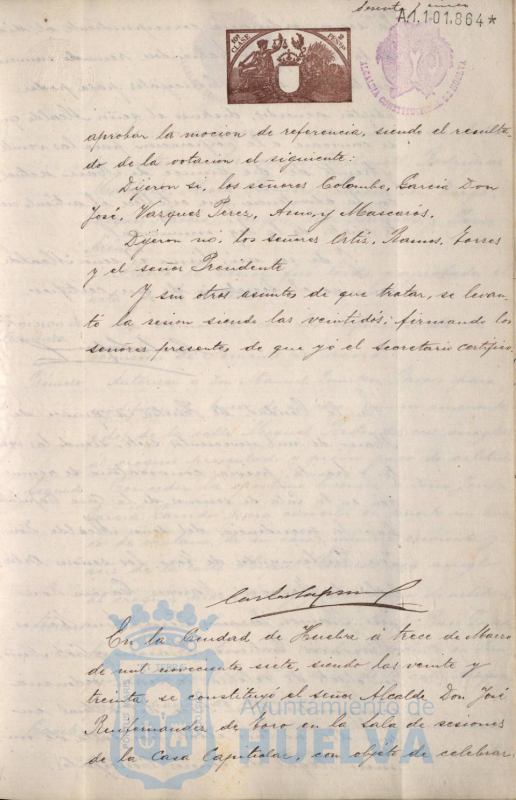 A.1.101.864*
10ª CLASE 2 PESAS
ALCALDIA CONSTITUCIONAL DE HUELVA
aprobar la mocion de referencia, siendo el resulta-
do de la votacion el siguiente:
Dijeron si, los señores Colombo, Garcia Don
José, Vazquez Perez, y Mascarós.
Dijeron nó, los señores Ortiz, Ramos, Torres
y el señor Presidente
Y sin otros asuntos de que tratar, se levan-
tó la sesion siendo las veintidós; firmando los
señores presentes, de que yó el Secretario certifico.
En la Ciudad de Huelva á trece de Marzo
de mil novecientos siete, siendo las veinte y
treinta, se constituyó el señor Alcalde, Don José
de Toro en la Sala de sesiones
de la Casa Capitular, con objeto de celebrar
Ayuntamiento de
HUELVA